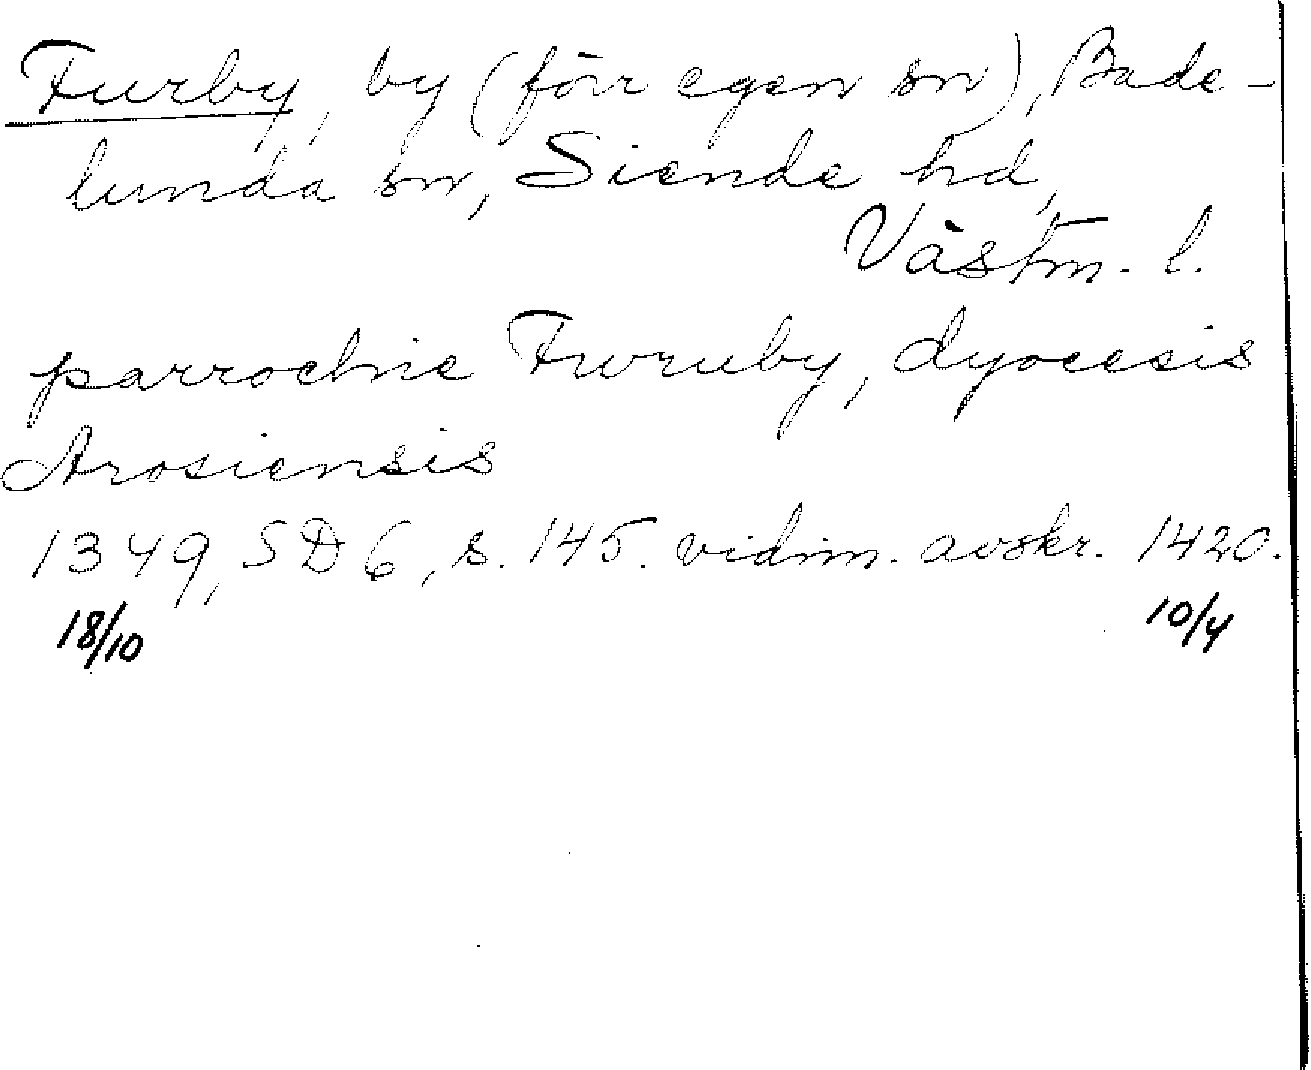 Furby, by (förr egen sn), Bade-
lunda sn, Siende hd,
Västm. l.
parrochie Furuby, dyocesis
Arosiensis
1349, SD 6, s. 145. vidim. avskr. 1420.
18/10 10/4